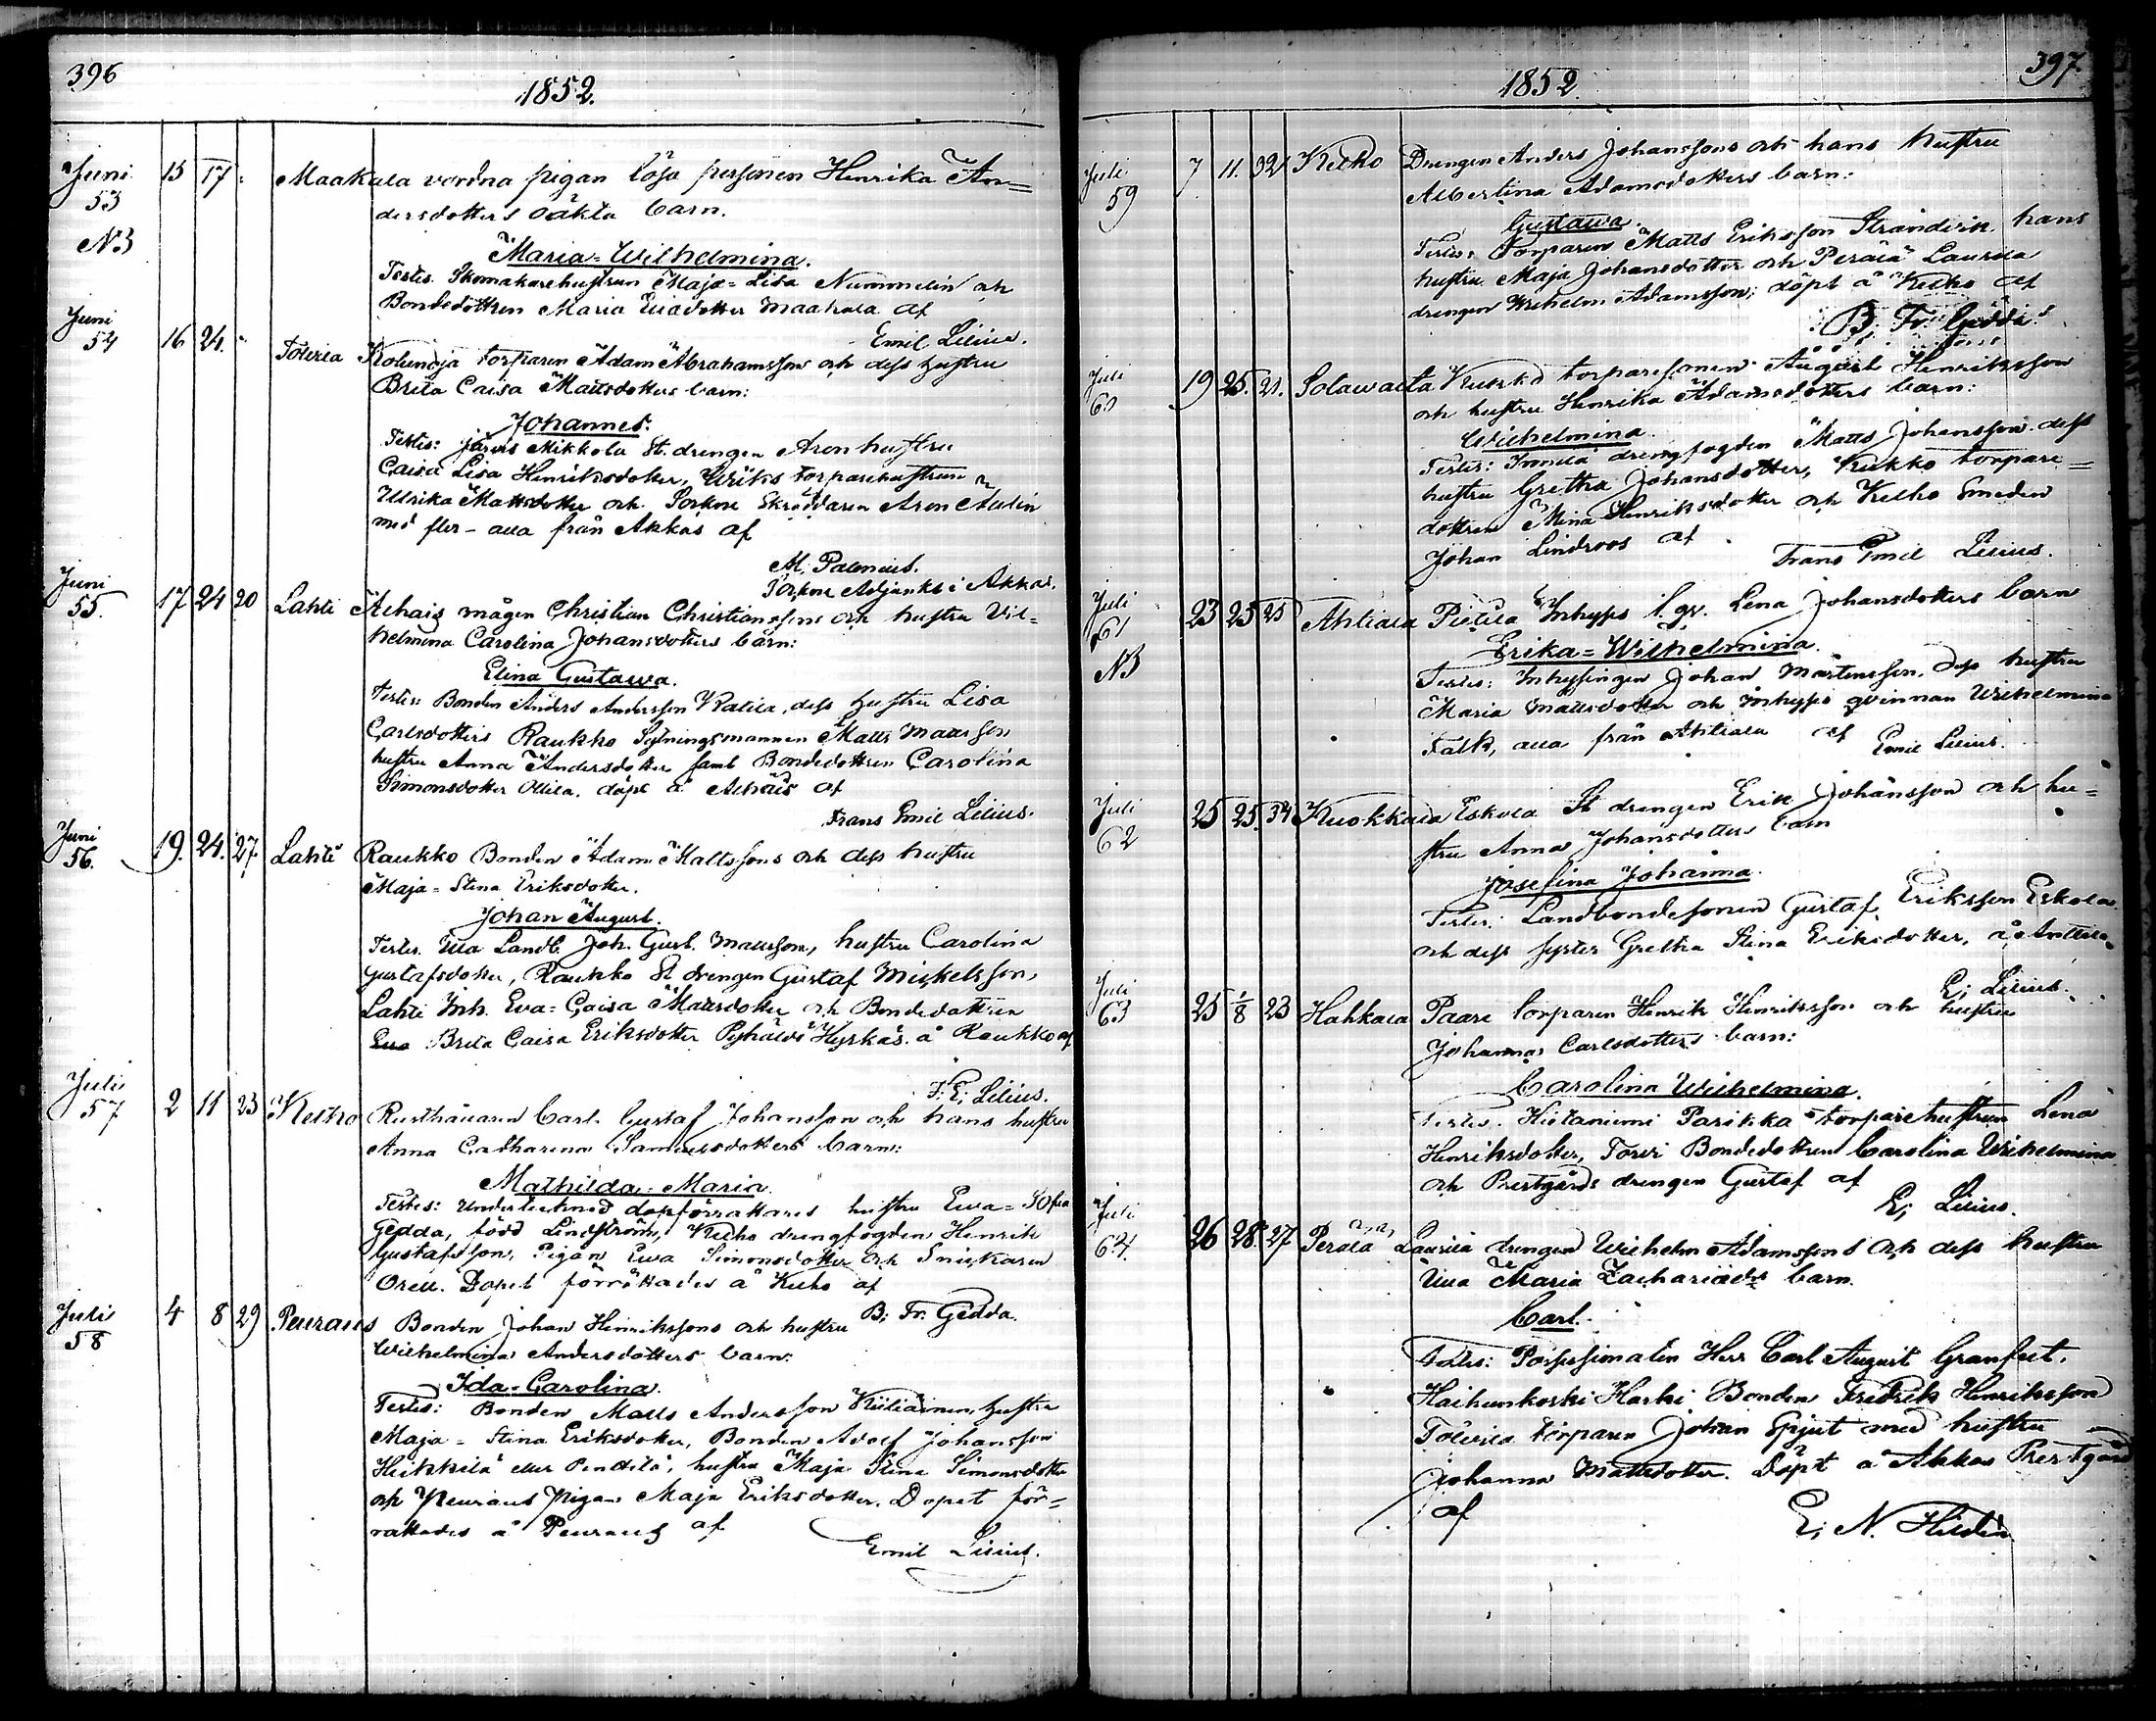 396
1852.
Juni 53 15 17 Maakala vordna pigan lösa personen Henrika An=
N3 dersdotters oäkta barn.
Maria=Wilhelmina.
Testes. Skomakarehustrun Maja=Lisa Nummelin och
Bondedottren Maria Eliadotter Maakala af
Emil Lilius.
Juni 54 16 24. Toivila torparen Adam Abrahamsson och dess hustru
Brita Caisa Mattsdotters barn:
Johannes.
Testes: Mikkola St. drengen Aron hustru
Caisa Lisa Henriksdotter, torparehustrun
Ulrika Mattsdotter och Skräddaren Aron
med fler – alla från Akkas af
M. Palenius.
Adjunkt i Akkas.
Juni 55. 17 24 20 Lahti Alhais mågen Christian Christianssons och hustru Vil=
helmina Carolina Johansdotters barn:
Elina Gustawa.
Testes: Bonden Anders Andersson dess hustru Lisa
Carlsdotters Raukko Sytningsmannen Matts Mattsson
hustru Anna Andersdotter samt Bondedottren Carolina
Simonsdotter Ollila, döpt å Alhais af
Frans Emil Lilius.
Juni 56. 19. 24. 27 Lahti Raukko Bonden Adam Mattssons och dess hustru
Maja=Stina Eriksdotter.
Johan August.
Testes. Landb. Joh. Gust. Mattsson, hustru Carolina
Gustafsdotter, Raukko St drengen Gustaf Mickelsson,
Lahti Inh. Eva=Caisa Mattsdotter och Bondedottren
Brita Caisa Eriksdotter Hyrkäs å Raukko af
F. E. Lilius.
Juli 57 2 11 23 Kelho Rusthållaren Carl Gustaf Johansson och hans hustru
Anna Catharina Samuelsdotters barn:
Mathilda=Maria
Testes: Undertecknad dopförrättares hustru Ewa=Sofia
Gedda, född Lindström, Kelho drengfogden Henrik
Gustafsson, Pigan Ewa Simonsdotter och Snickaren
Orell. Dopet förrättades å Kelho af
B. Fr. Gedda.
Juli 58 4 8 29 Peuraus Bonden Johan Henrikssons och hustru
Wilhelmina Andersdotters barn:
Ida=Carolina.
Testes: Bonden Matts Andersson hustru
Maja=Stina Eriksdotter, Bonden Adolf Johansson
Heikkilä eller Penttilä, hustru Maja Stina Simonsdotter
och Peuraus Pigan Maja Eriksdotter. Dopet för=
rättades å Peuraus af
Emil Lilius.
397.
1852
Juli 59 7 11. 32 Kelho Drengen Anders Johanssons och hans hustru
Albertina Adamsdotters barn:
Gustawa.
Testes: Torparen Matts Eriksson hans
hustru Maja Johansdotter och Perälä Laurila
drengen Wilhelm Adamsson; döpt å Kelho af
B. Fr. Gedda.
Juli 60 19 25. 21. Sotawalta torparesonen August Henriksson
och hustru Henrika Adamsdotters barn:
Wilhelmina.
Testes: drengfogden Matts Johansson dess
hustru Gretha Johansdotter, Kukko torpare=
dottren Mina Henriksdotter och Kelho Smeden
Johan Lindroos af
Frans Emil Lilius.
Juli 61 23 25 25 Ahtiala Pietila Inhyses l. qv. Lena Johansdotters barn
N3 Erika=Wilhelmina.
Testes: Inhysingen Johan Mårtensson, dess hustru
Maria Mattsdotter och Inhyses qvinnan Wilhelmina
Falk, alla från Ahtiala af
Emil Lilius.
Juli 62 25 25. 34 Kuokkala Eskola St drengen Erik Johansson och hu=
stru Anna Johansdotters barn
Josefina Johanna.
Testes: Landbondesonen Gustaf Eriksson Eskola
och dess syster Gretha Stina Eriksdotter, å Anttila.
E. Lilius.
Juli 63 25 1/8 23 Hahkala Paari torparen Henrik Henriksson och hustru
Johanna Carlsdotters barn:
Carolina Wilhelmina.
Testes. Hietaniemi Parikka torparehustrun Lena
Henriksdotter, Bondedottren Carolina Wilhelmina
och Prestgårds drengen Gustaf af
E. Lilius.
Juli 64. 26 28. 27 Perälä Laurila drengen Wilhelm Adamssons och dess hustru
Ulla Maria Zachariæds barn.
Carl.
Testes: Possessionaten Herr Carl August Granfelt.
Haihunkoski Harki Bonden Fredrik Henriksson
Toivila torparen Johan Spjut med hustru
Johanna Mattsdotter. Döpt å Akkas Prestgård
af
E. N. Hildén